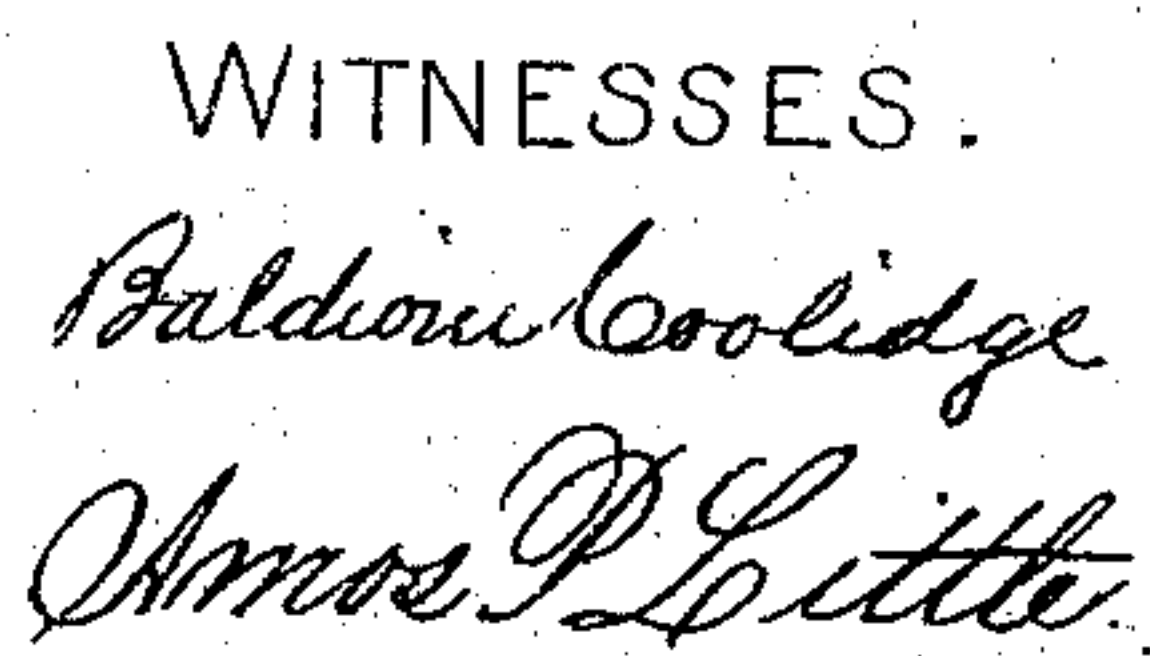 WITNESSES.
Baldwin Coolidge
Amos P Little.